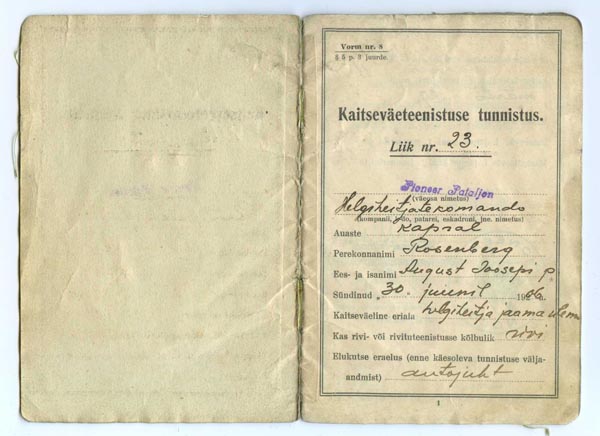 Vorm nr. 8
§ 5 p. 3 juurde.
Kaitseväeteenistuse tunnistus.
Liik nr. 23.
Pioneer Pataljon
(väeosa nimetus)
Helgiheitjatekomando
(kompanii, jao, patarei, eskadroni, jne. nimetus)
Auaste kapral
Perekonnanimi Rosenberg
Ees- ja isanimi August Joosepi p.
Sündinud „30. juunil 19
Kaitseväeline eriala helgiheitja jaama ülem
Kas rivi- või rivituteenistusse kõlbulik rivi
Elukutse eraelus (enne käesoleva tunnistuse välja-
andmist) autojuht
1